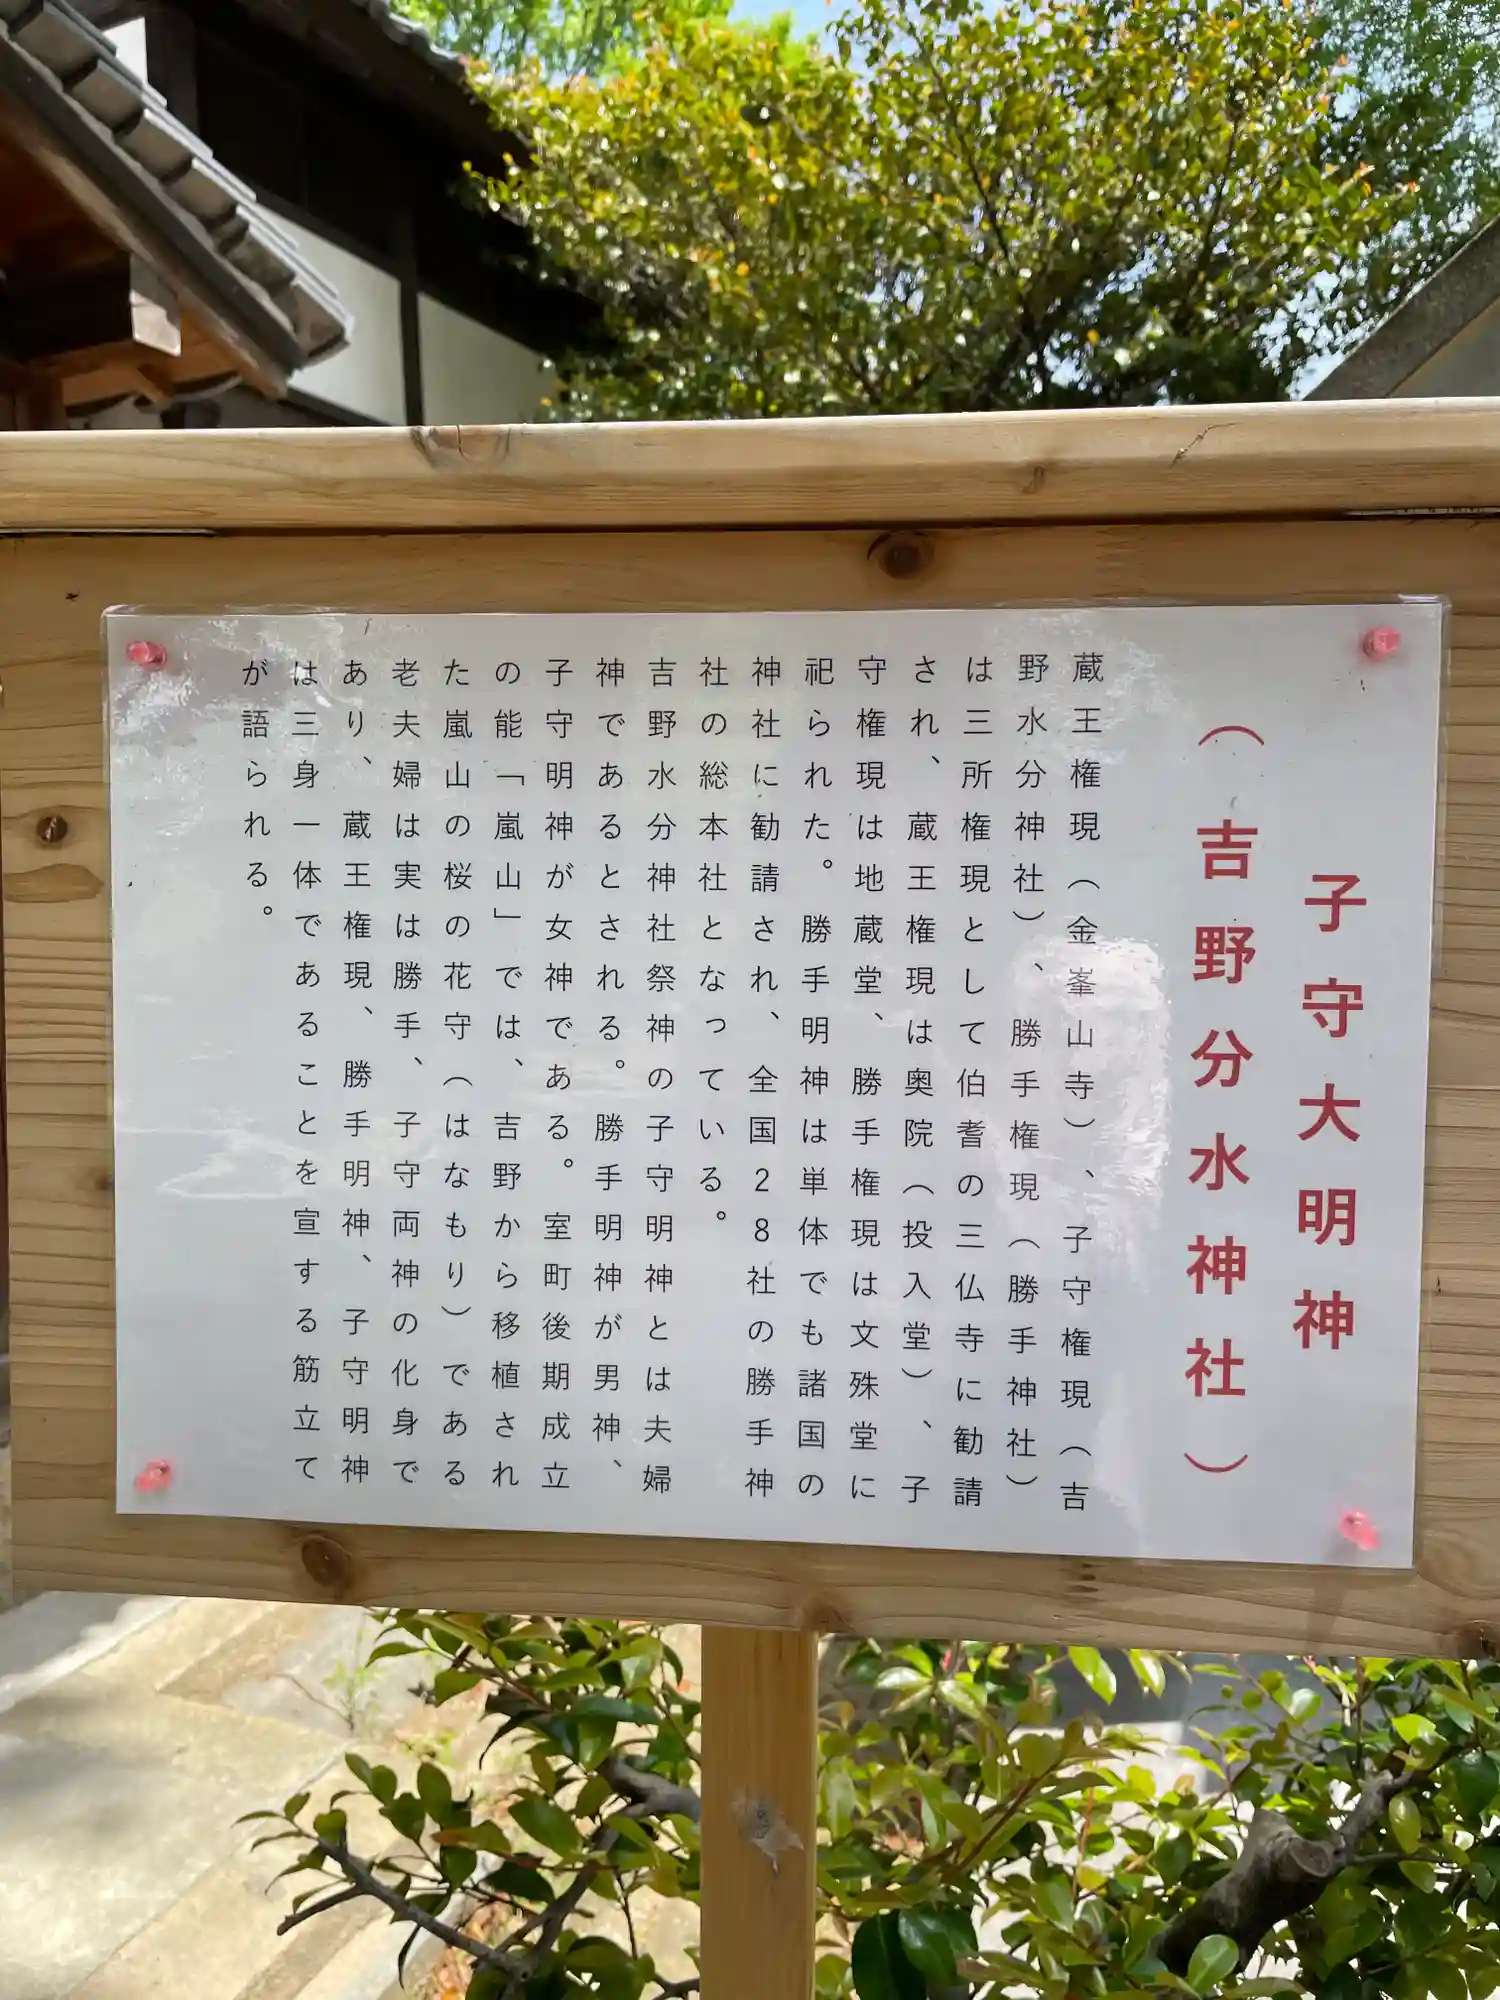 子守大明神
（吉野分水神社）
蔵王権現（金峯山寺）、子守権現（吉
野水分神社）、勝手権現（勝手神社）
は三所権現として伯耆の三仏寺に勧請
され、蔵王権現は奥院（投入堂）、子
守権現は地蔵堂、勝手権現は文殊堂に
祀られた。勝手明神は単体でも諸国の
神社に勧請され、全国28社の勝手神
社の総本社となっている。
吉野水分神社祭神の子守明神とは夫婦
神であるとされる。勝手明神が男神、
子守明神が女神である。室町後期成立
の能「嵐山」では、吉野から移植され
た嵐山の桜の花守（はなもり）である
老夫婦は実は勝手、子守両神の化身で
あり、蔵王権現、勝手明神、子守明神
は三身一体であることを宣する筋立て
が語られる。